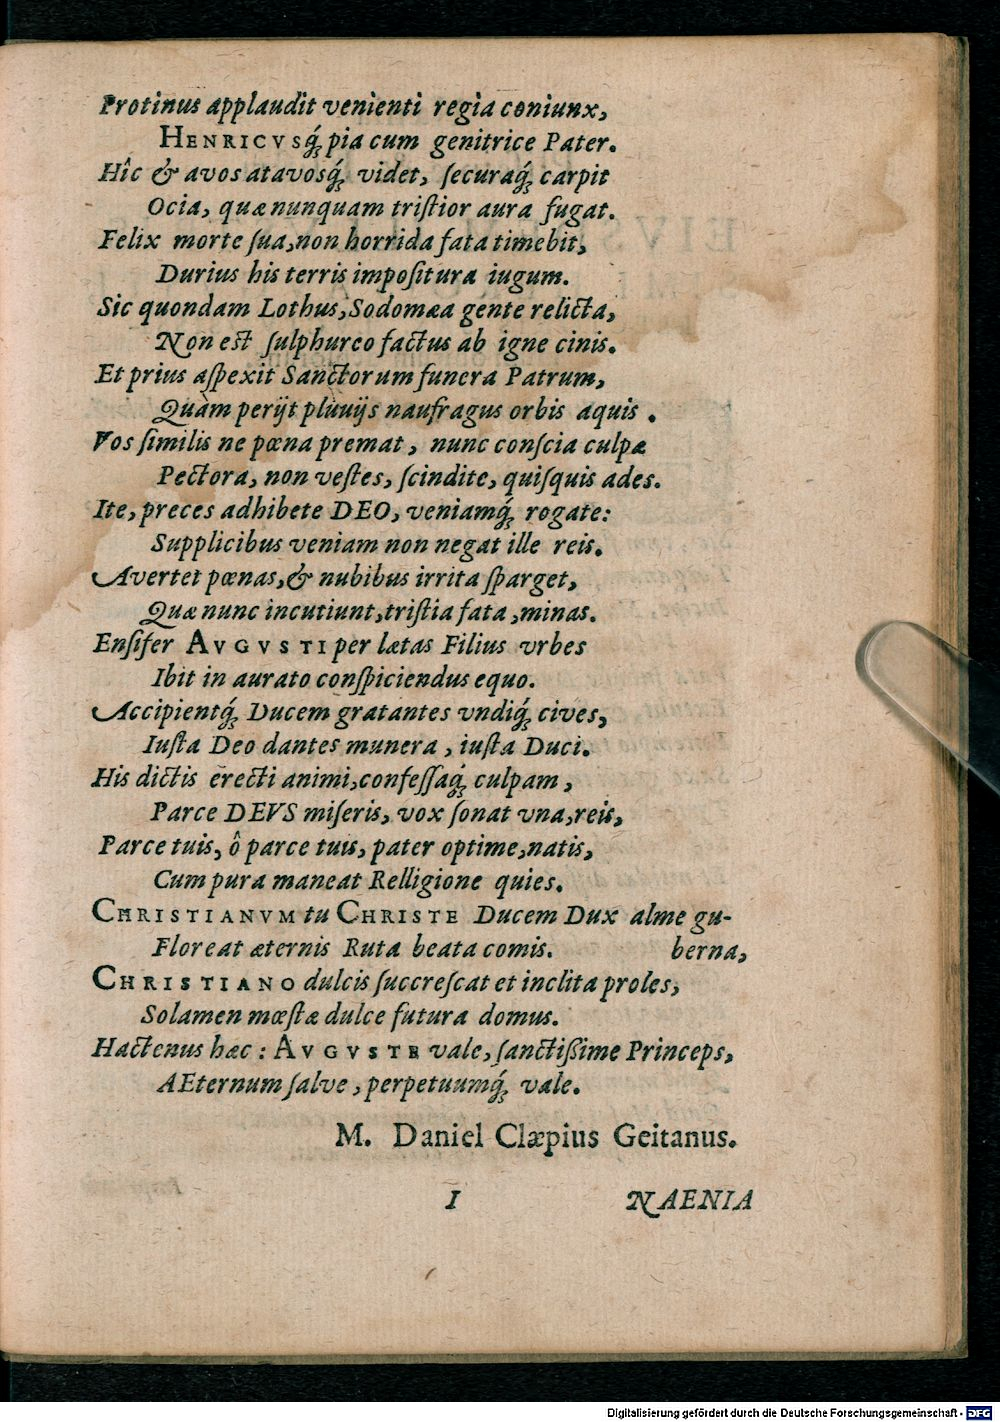 Protinus applaudit venienti regia coniunx,
HENRICVSq́; pia cum genitrice Pater.
Hîc & avos atavosq́; videt, ſecuraq́; carpit
Ocia, quæ nunquam triſtior aura fugat.
Felix morte ſua, non horrida fata timebit,
Durius his terris impoſitura iugum.
Sic quondam Lothus, Sodomæa gente relicta,
Non est ſulphureo factus ab igne cinis.
Et prius aſpexit Sanctorum funera Patrum,
Quàm perijt pluuijs naufragus orbis aquis.
Vos ſimilis ne pœna premat, nunc conſcia culpæ
Pectora, non veſtes, ſcindite, quiſquis ades.
Ite, preces adhibete DEO, veniamq́; rogate:
Supplicibus veniam non negat ille reis.
Avertet pœnas, & nubibus irrita ſparget,
Quæ nunc incutiunt, triſtia fata, minas.
Enſifer AVGVSTI per lætas Filius vrbes
Ibit in aurato conſpiciendus equo.
Accipientq́; Ducem gratantes vndiq́; cives,
Iuſta Deo dantes munera, iuſta Duci.
His dictis erecti animi, confeſſaq́; culpam,
Parce DEVS miſeris, vox ſonat vna, reis,
Parce tuis, ô parce tuis, pater optime, natis,
Cum pura maneat Relligione quies.
CHRISTIANVM tu CHRISTE Ducem Dux alme gu-
Floreat æternis Ruta beata comis. berna,
CHRISTIANO dulcis ſuccreſcat et inclita proles,
Solamen mœſtæ dulce futura domus.
Hactenus hæc: AVGVSTE vale, ſanctißime Princeps,
AEternum ſalve, perpetuumq́; vale.
M. Daniel Clæpius Geitanus.
I NAENIA
Digitalisierung gefördert durch die Deutsche Forschungsgemeinschaft - DFG